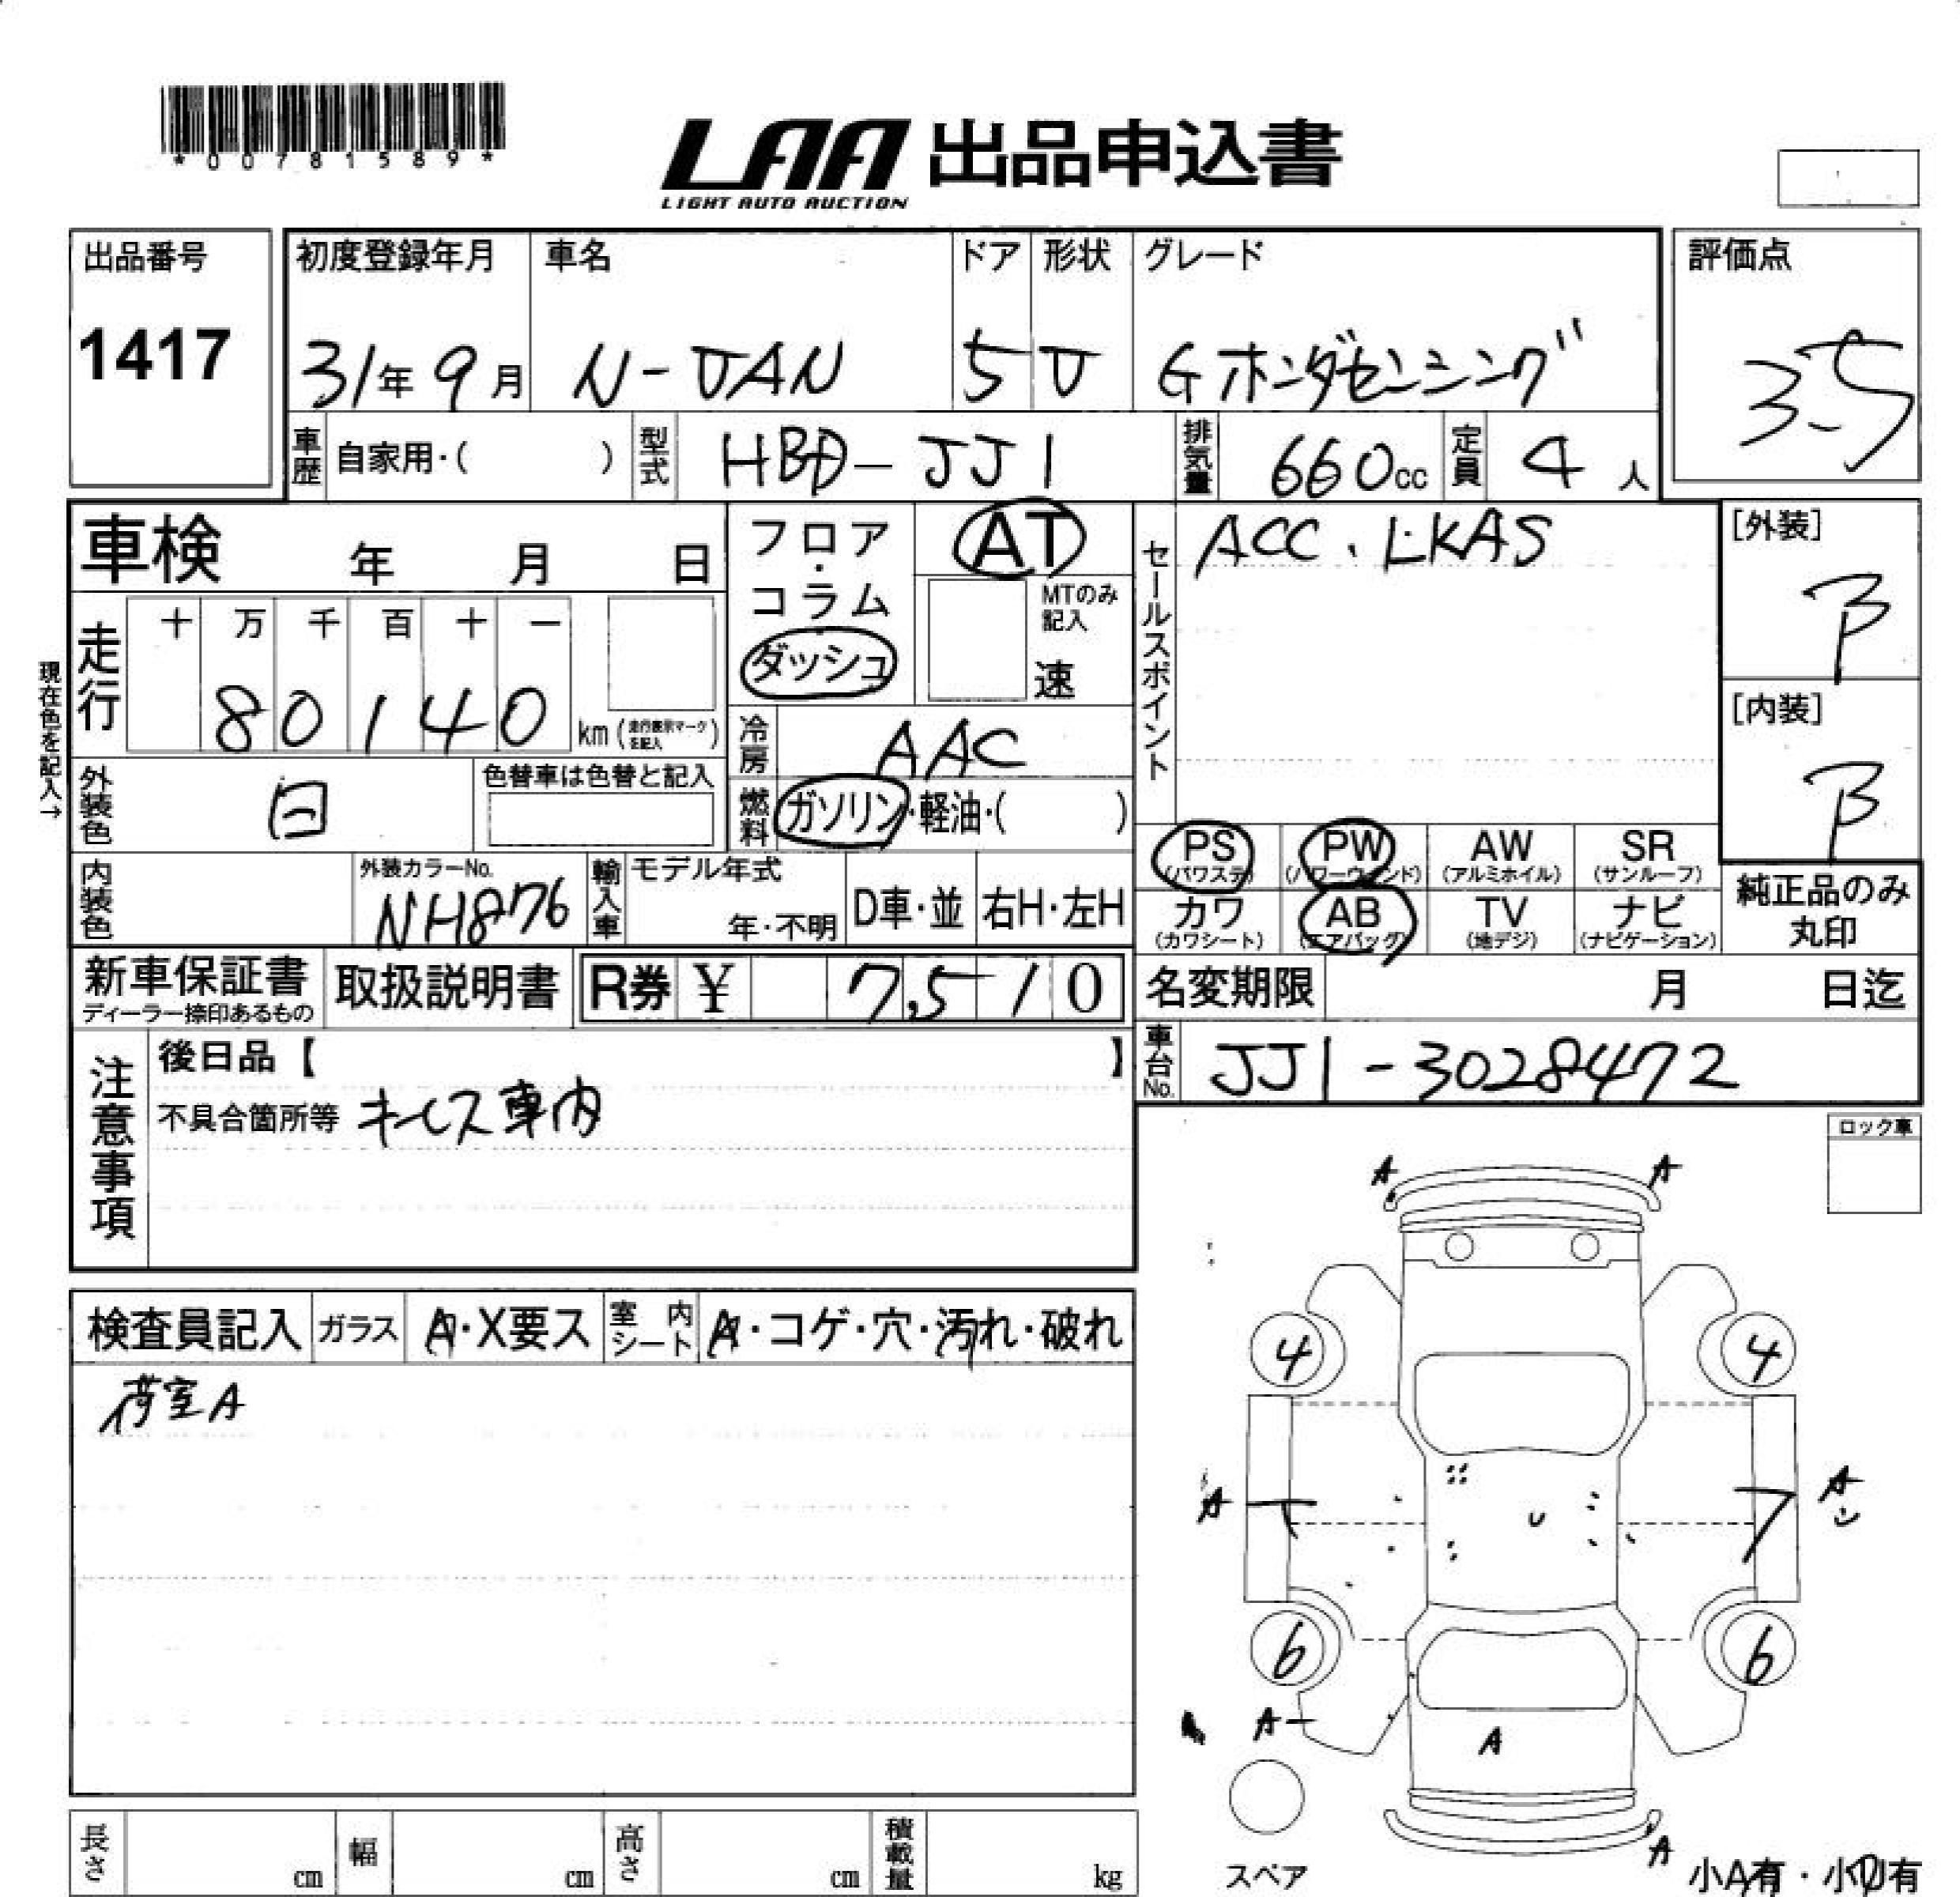 *00781589*
LAA 出品申込書
LIGHT AUTO AUCTION
出品番号 1417
初度登録年月 31年9月
車名 N-VAN
ドア 5
形状 V
グレード Gホンダセンシング
評価点 3.5
車歴 自家用・( )
型式 HBD-JJ1
排気量 660cc
定員 4人
車検 年 月 日
フロア・コラム ダッシュ
AT
MTのみ記入 速
セールスポイント ACC、LKAS
[外装] B
[内装] B
現在色を記入→
走行 十 万 千 百 十 一
80140 km (走行表示マークを記入)
冷房 AAC
外装色 白
色替車は色替と記入
燃料 ガソリン・軽油・( )
PS (パワステ) PW (パワーウィンド) AW (アルミホイル) SR (サンルーフ)
カワ (カワシート) AB (エアバッグ) TV (地デジ) ナビ (ナビゲーション)
純正品のみ丸印
内装色
外装カラーNo. NH876
輸入車 モデル年式 年・不明 D車・並 右H・左H
新車保証書 ディーラー捺印あるもの
取扱説明書
R券 ¥ 7,510
名変期限 月 日迄
車台No. JJ1-3028472
注意事項
後日品【 】
不具合箇所等 キーレス車内
ロック車
検査員記入 ガラス A・X要ス 室内シート A・コゲ・穴・汚れ・破れ
荷室A
A A
4 4
A A
6 6
A
A
A
スペア
小A有・小U有
長さ cm 幅 cm 高さ cm 積載量 kg